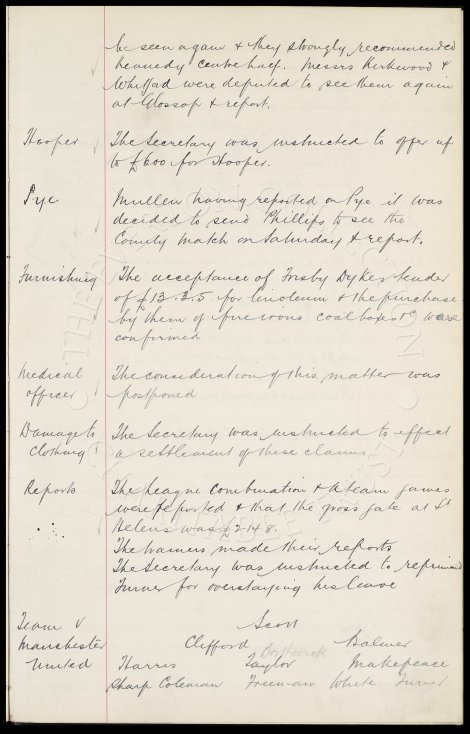 be seen again & they strongly recommended
Kennedy centre half. Messrs Kirkwood &
Whitfad were deputed to see them again
at Glossop & report.
Hooper The Secretary was instructed to offer up
to £600 for Hooper.
Pye Mullen having reported on Pye it was
decided to send Phillips to see the
County Match on Saturday & report.
Furnishing The acceptance of Frisby Dykes tender
of £13.3.5 for linoleum & the purchase
by them of fire irons coal boxes &c were
confirmed
Medical The consideration of this matter was
officer postponed
Damage to The Secretary was instructed to effect
clothing a settlement of these claims
Reports The League Combination & A team games
were reported & that the gross gate at St
Helens was £7.14.8.
The trainers made their reports
The Secretary was instructed to reprimand
Turner for overstaying his leave
Team v Scott
Manchester Clifford Balmer
United Harris Taylor Borthwick Makepeace
Sharp Coleman Freeman White Turner